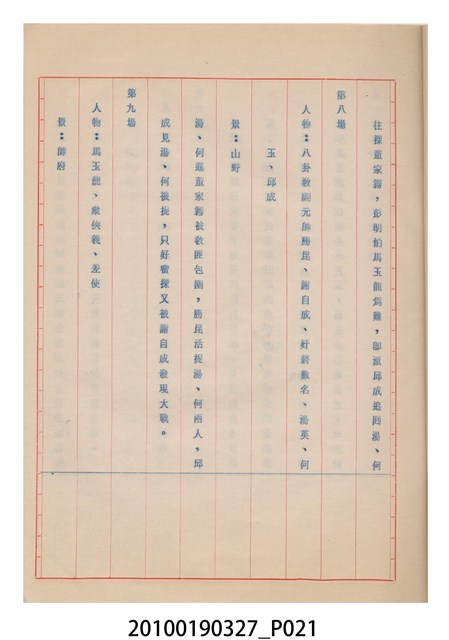 往探董家鎮，彭明怕馬玉龍為難，即派邱成追回湯、何
第八場
人物：八卦教副元帥勝昆、謝自成、奸終數名、湯英、何
玉、邱成
景：山野
湯、何逛董家鎮被教匪包圍，勝昆活捉湯、何兩人，邱
成見湯、何被捉，只好密探又被謝自成發現大戰。
第九場
人物：馬玉龍、眾俠義、差使
景：帥府
20100190327_P021